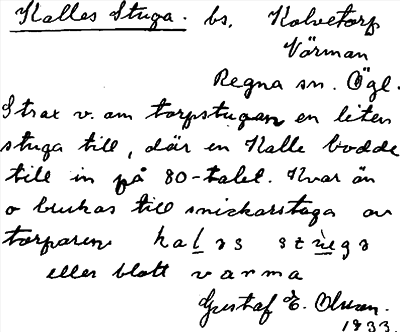 Kalles Stuga. bs. Kalvetorp
Värman
Regna sn. Ögl.
Strax v. om torpstugan en liten
stuga till, där en Kalle bodde
till in på 80-talet. Kvar än
o brukas till snickarstuga av
torparen kalɜs stu̇egɜ
eller blott varma
Gustaf E. Olsson.
1933.